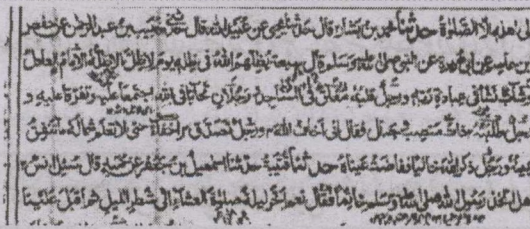 هذه الا الصلوة حدثنا محمد بن بشار قال حدثنا يحيى عن عبيد الله قال حدثني خبيب بن عبد الرحمن عن حفص
بن عاصم عن ابي هريرة عن النبي صلى الله عليه وسلم قال سبعة يظلهم الله في ظله يوم لا ظل الا ظله الامام العادل
وشاب نشأ في عبادة ربه ورجل قلبه معلق في المساجد ورجلان تحابا في الله اجتمعا عليه وتفرقا عليه و
رجل طلبته ذات منصب وجمال فقال اني اخاف الله ورجل تصدق اخفاء حتى لا تعلم شماله ما تنفق
يمينه ورجل ذكر الله خاليا ففاضت عيناه حدثنا قتيبة حدثنا اسمعيل بن جعفر عن حميد قال سئل انس
هل اتخذ رسول الله صلى الله عليه وسلم خاتما فقال نعم اخر ليلة صلوة العشاء الى شطر الليل ثم اقبل علينا